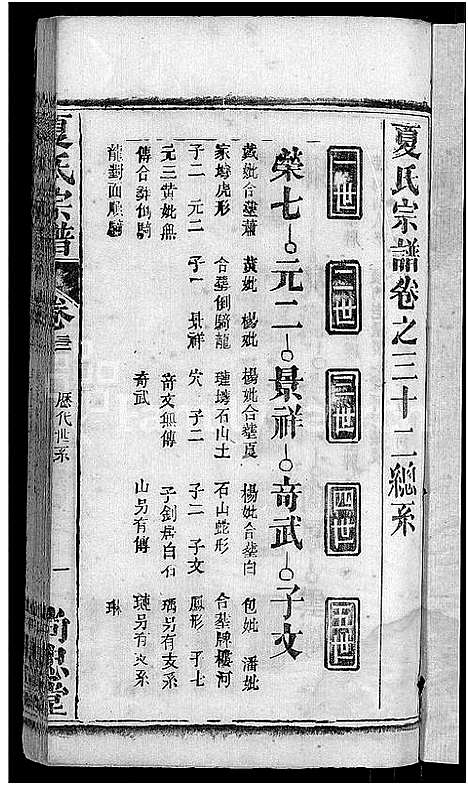 夏氏宗譜卷之三十二總系
一世
二世
三世
四世
五世
榮七 元二 景祥 奇武 子文
戴妣合葬蕭 黃妣 楊妣 楊妣合葬良 楊妣合葬白 包妣 潘妣
家塆虎形 合葬倒騎龍 璉塆石山土 石山蛇形 合葬牌樓河
子二 元二 子一 景祥 穴 子二 子二 子文 鳳形 子七
元三黃妣無 奇文無傳 子釗居白石 瑀另有支系
傳合葬仙騎 奇武 山另有傳 璉另有支系
龍對面順騎 琳
夏氏宗譜
卷三
歷代世系
一
尚忠堂